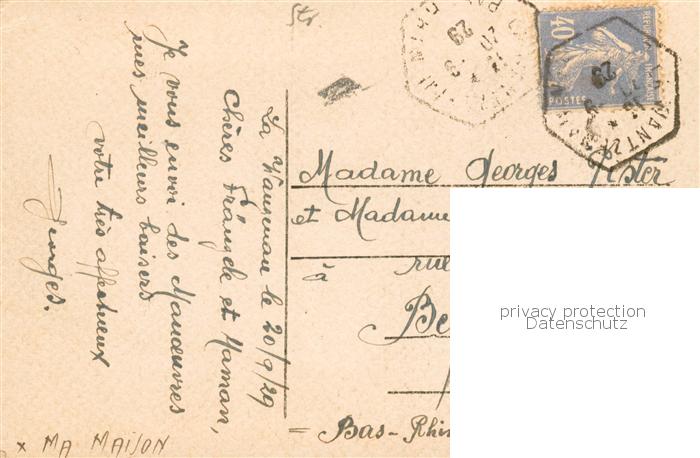 La Wantzenau le 20/9/29
Chères Frängele et Maman,
Je vous envoi des Manœuvres
mes meilleurs baisers
votre très affectueux
Georges.
x MA MAISON
Madame Georges
et Madame
rue
à
Be
= Bas-Rhin
40
POSTES
29
29
privacy protection
Datenschutz